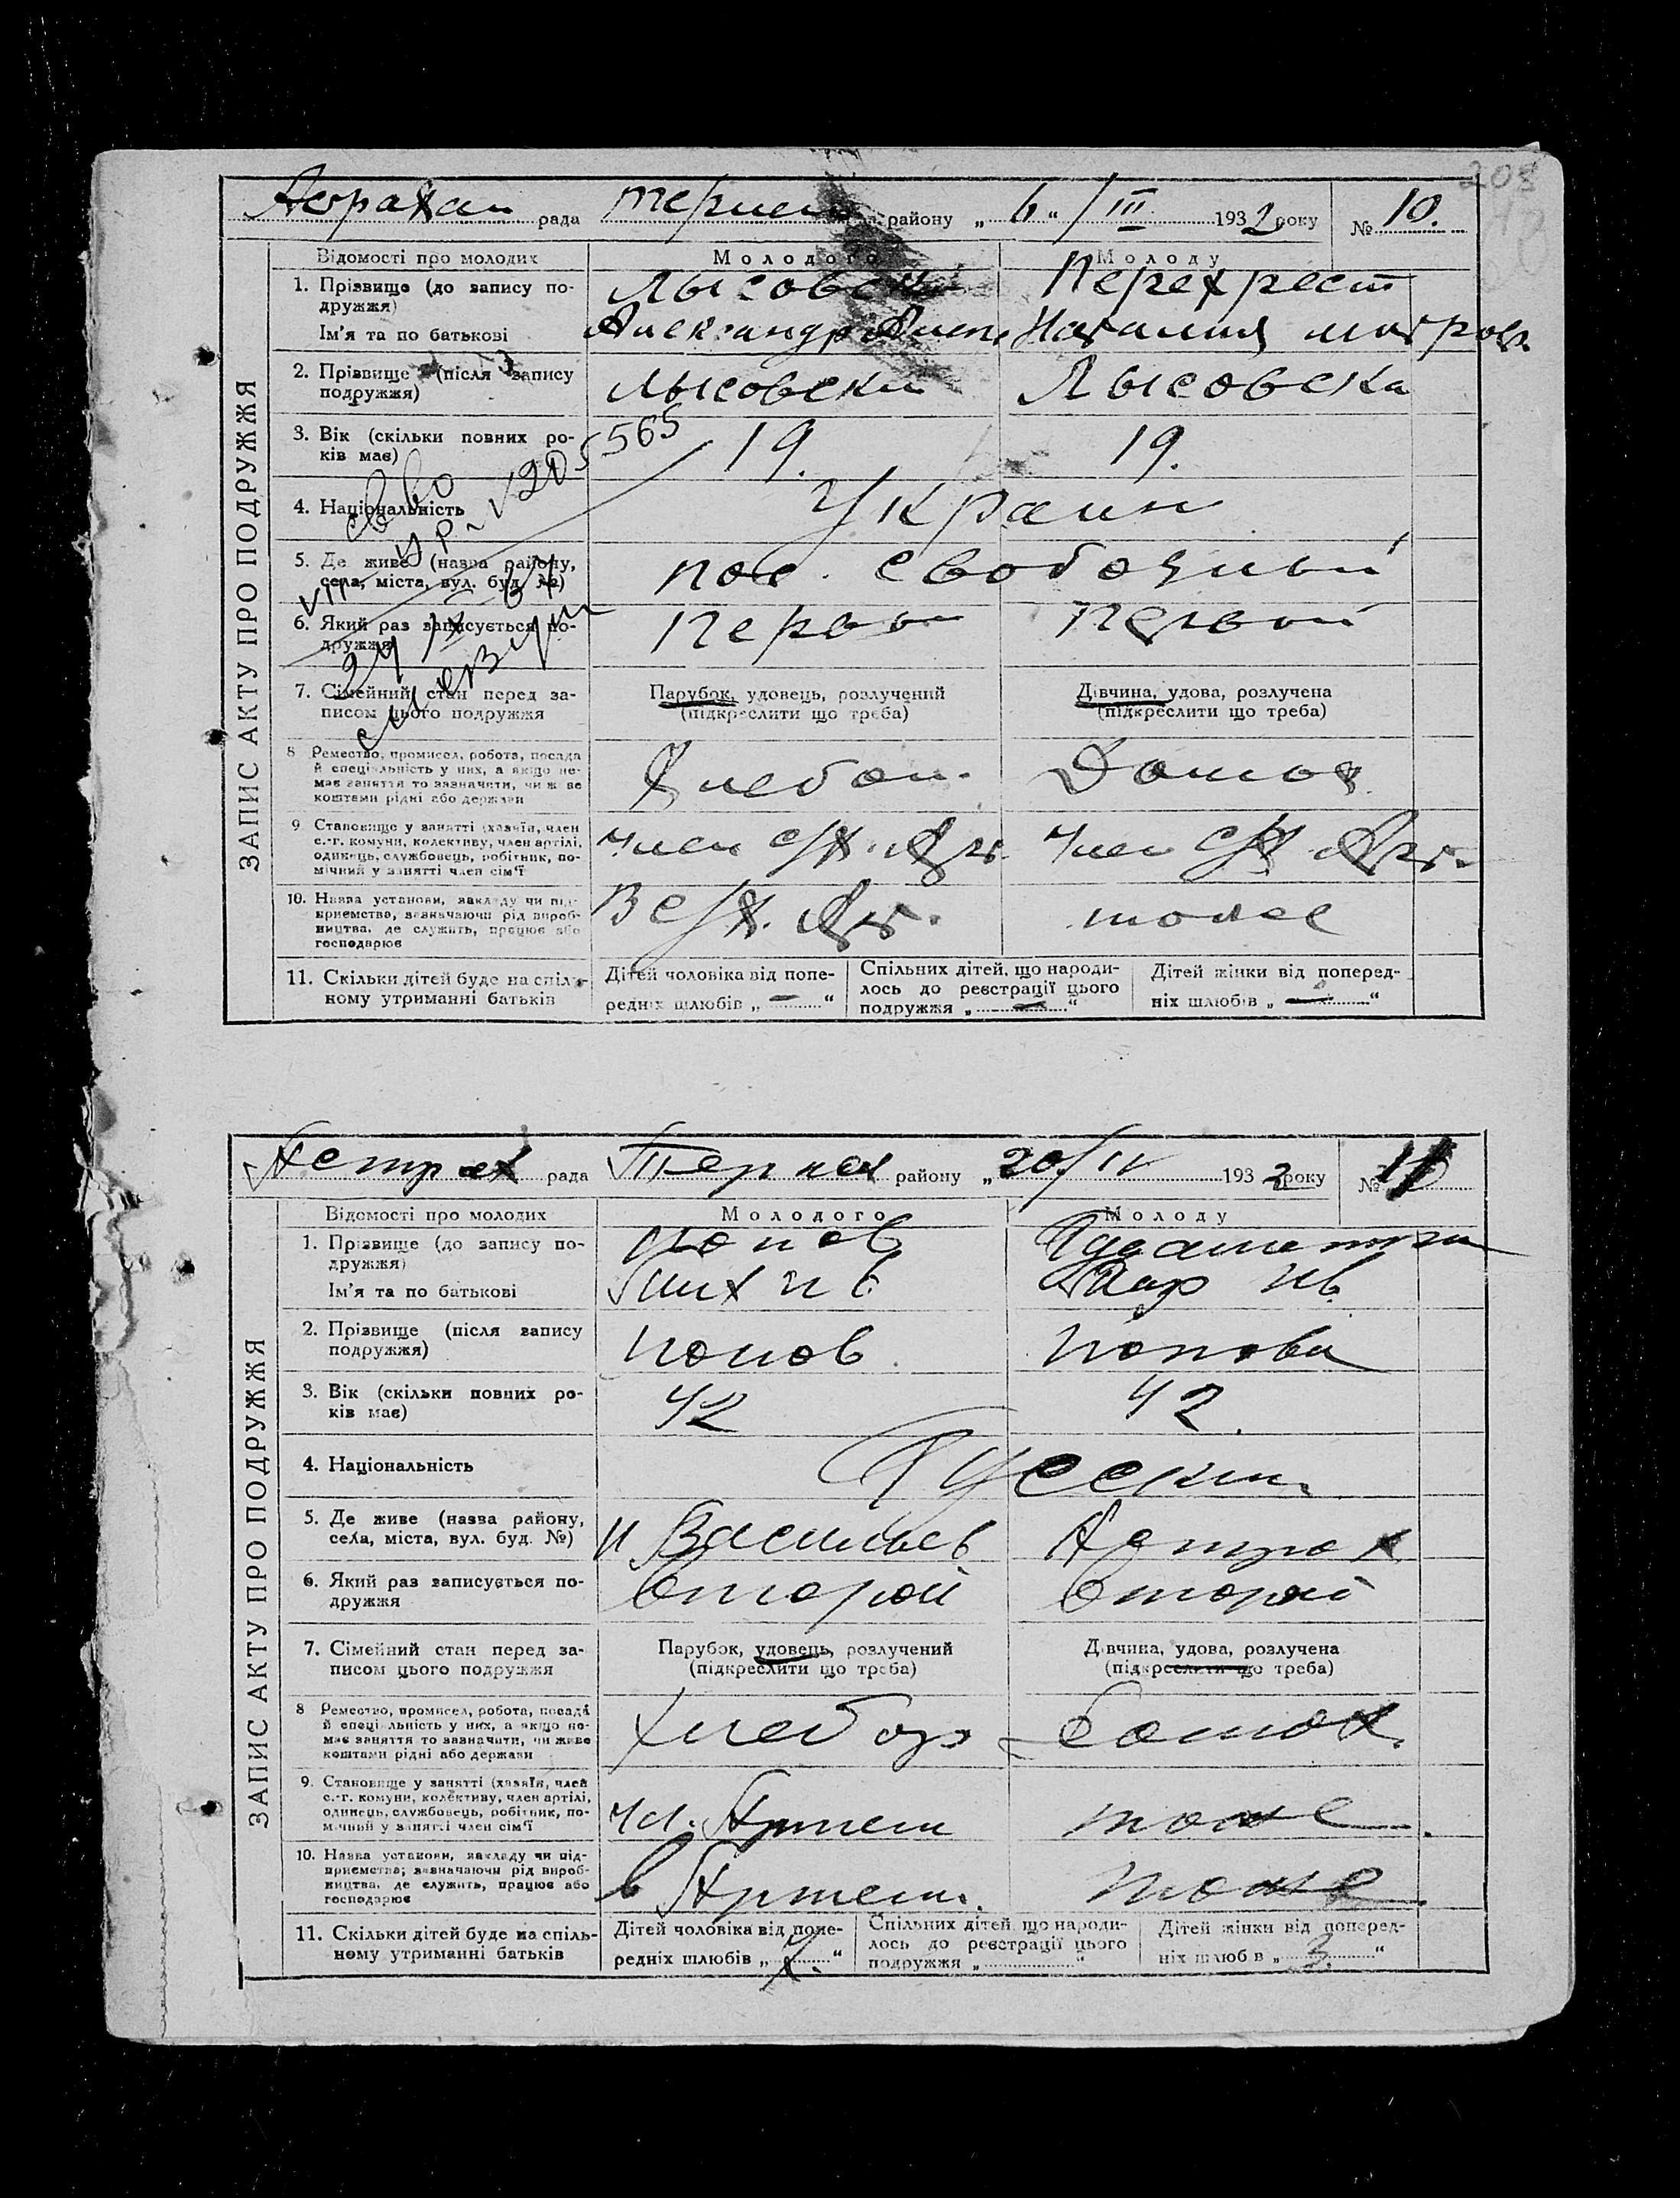 208
рада района „ 6 " / III 1932 року № 10.
ЗАПИС АКТУ ПРО ПОДРУЖЖЯ
Відомості про молодих Молодого Молоду
1. Прізвище (до запису подружжя) Лысовский Перехрест
Ім'я та по батькові Александр Наталия
2. Прізвище (після запису подружжя) Лысовски Лысовска
3. Вік (скільки повних років має) 19. 19.
4. Національність Украин
5. Де живе (назва району, села, міста, вул. буд. №) пос. Свободный
6. Який раз записується подружжя Первый Первый
7. Сімейний стан перед записом цього подружжя Парубок, удовець, розлучений (підкреслити що треба) Дівчина, удова, розлучена (підкреслити що треба)
8 Ремество, промисел, робота, посада й спеціяльність у них, а якщо немає заняття то зазначити, чи живе коштами рідні або держави Хлебоп. Домох
9 Становище у занятті (хазяїн, член с.-г. комуни, колективу, член артілі, одинець, службовець, робітник, помічний у занятті член сім'ї Член с/х. Арт. Член с/х Арт.
10. Назва установи, закладу чи підприємства, зазначаючи рід виробництва, де служить, працює або господарює В с/х. Арт. тоже
11. Скільки дітей буде на спільному утриманні батьків Дітей чоловіка від попередніх шлюбів „ — " Спільних дітей, що народилось до реєстрації цього подружжя „ — " Дітей жінки від попередніх шлюбів „ — "
рада району „ 20/IV 1932 року №
ЗАПИС АКТУ ПРО ПОДРУЖЖЯ
Відомості про молодих Молодого Молоду
1. Прізвище (до запису подружжя) Попов
Ім'я та по батькові Мих Ив
2. Прізвище (після запису подружжя) Попов Попова
3. Вік (скільки повних років має) 42 42.
4. Національність Русские
5. Де живе (назва району, села, міста, вул. буд. №) п Васильев Астрах
6. Який раз записується подружжя Второй Второй
7. Сімейний стан перед записом цього подружжя Парубок, удовець, розлучений (підкреслити що треба) Дівчина, удова, розлучена (підкреслити що треба)
8 Ремество, промисел, робота, посада й спеціяльність у них, а якщо немає заняття то зазначити, чи живе коштами рідні або держави Хлебор Домох.
9. Становище у занятті (хазяїн, член с.-г. комуни, колективу, член артілі, одинець, службовець, робітник, помічний у занятті член сім'ї чл. Артели тоже
10. Назва установи, закладу чи підприємства; зазначаючи рід виробництва, де служить, працює або господарює в Артели. тоже
11. Скільки дітей буде на спільному утриманні батьків Дітей чоловіка від попередніх шлюбів „ " Спільних дітей, що народилось до реєстрації цього подружжя „ " Дітей жінки від попередніх шлюбів „ 3. "